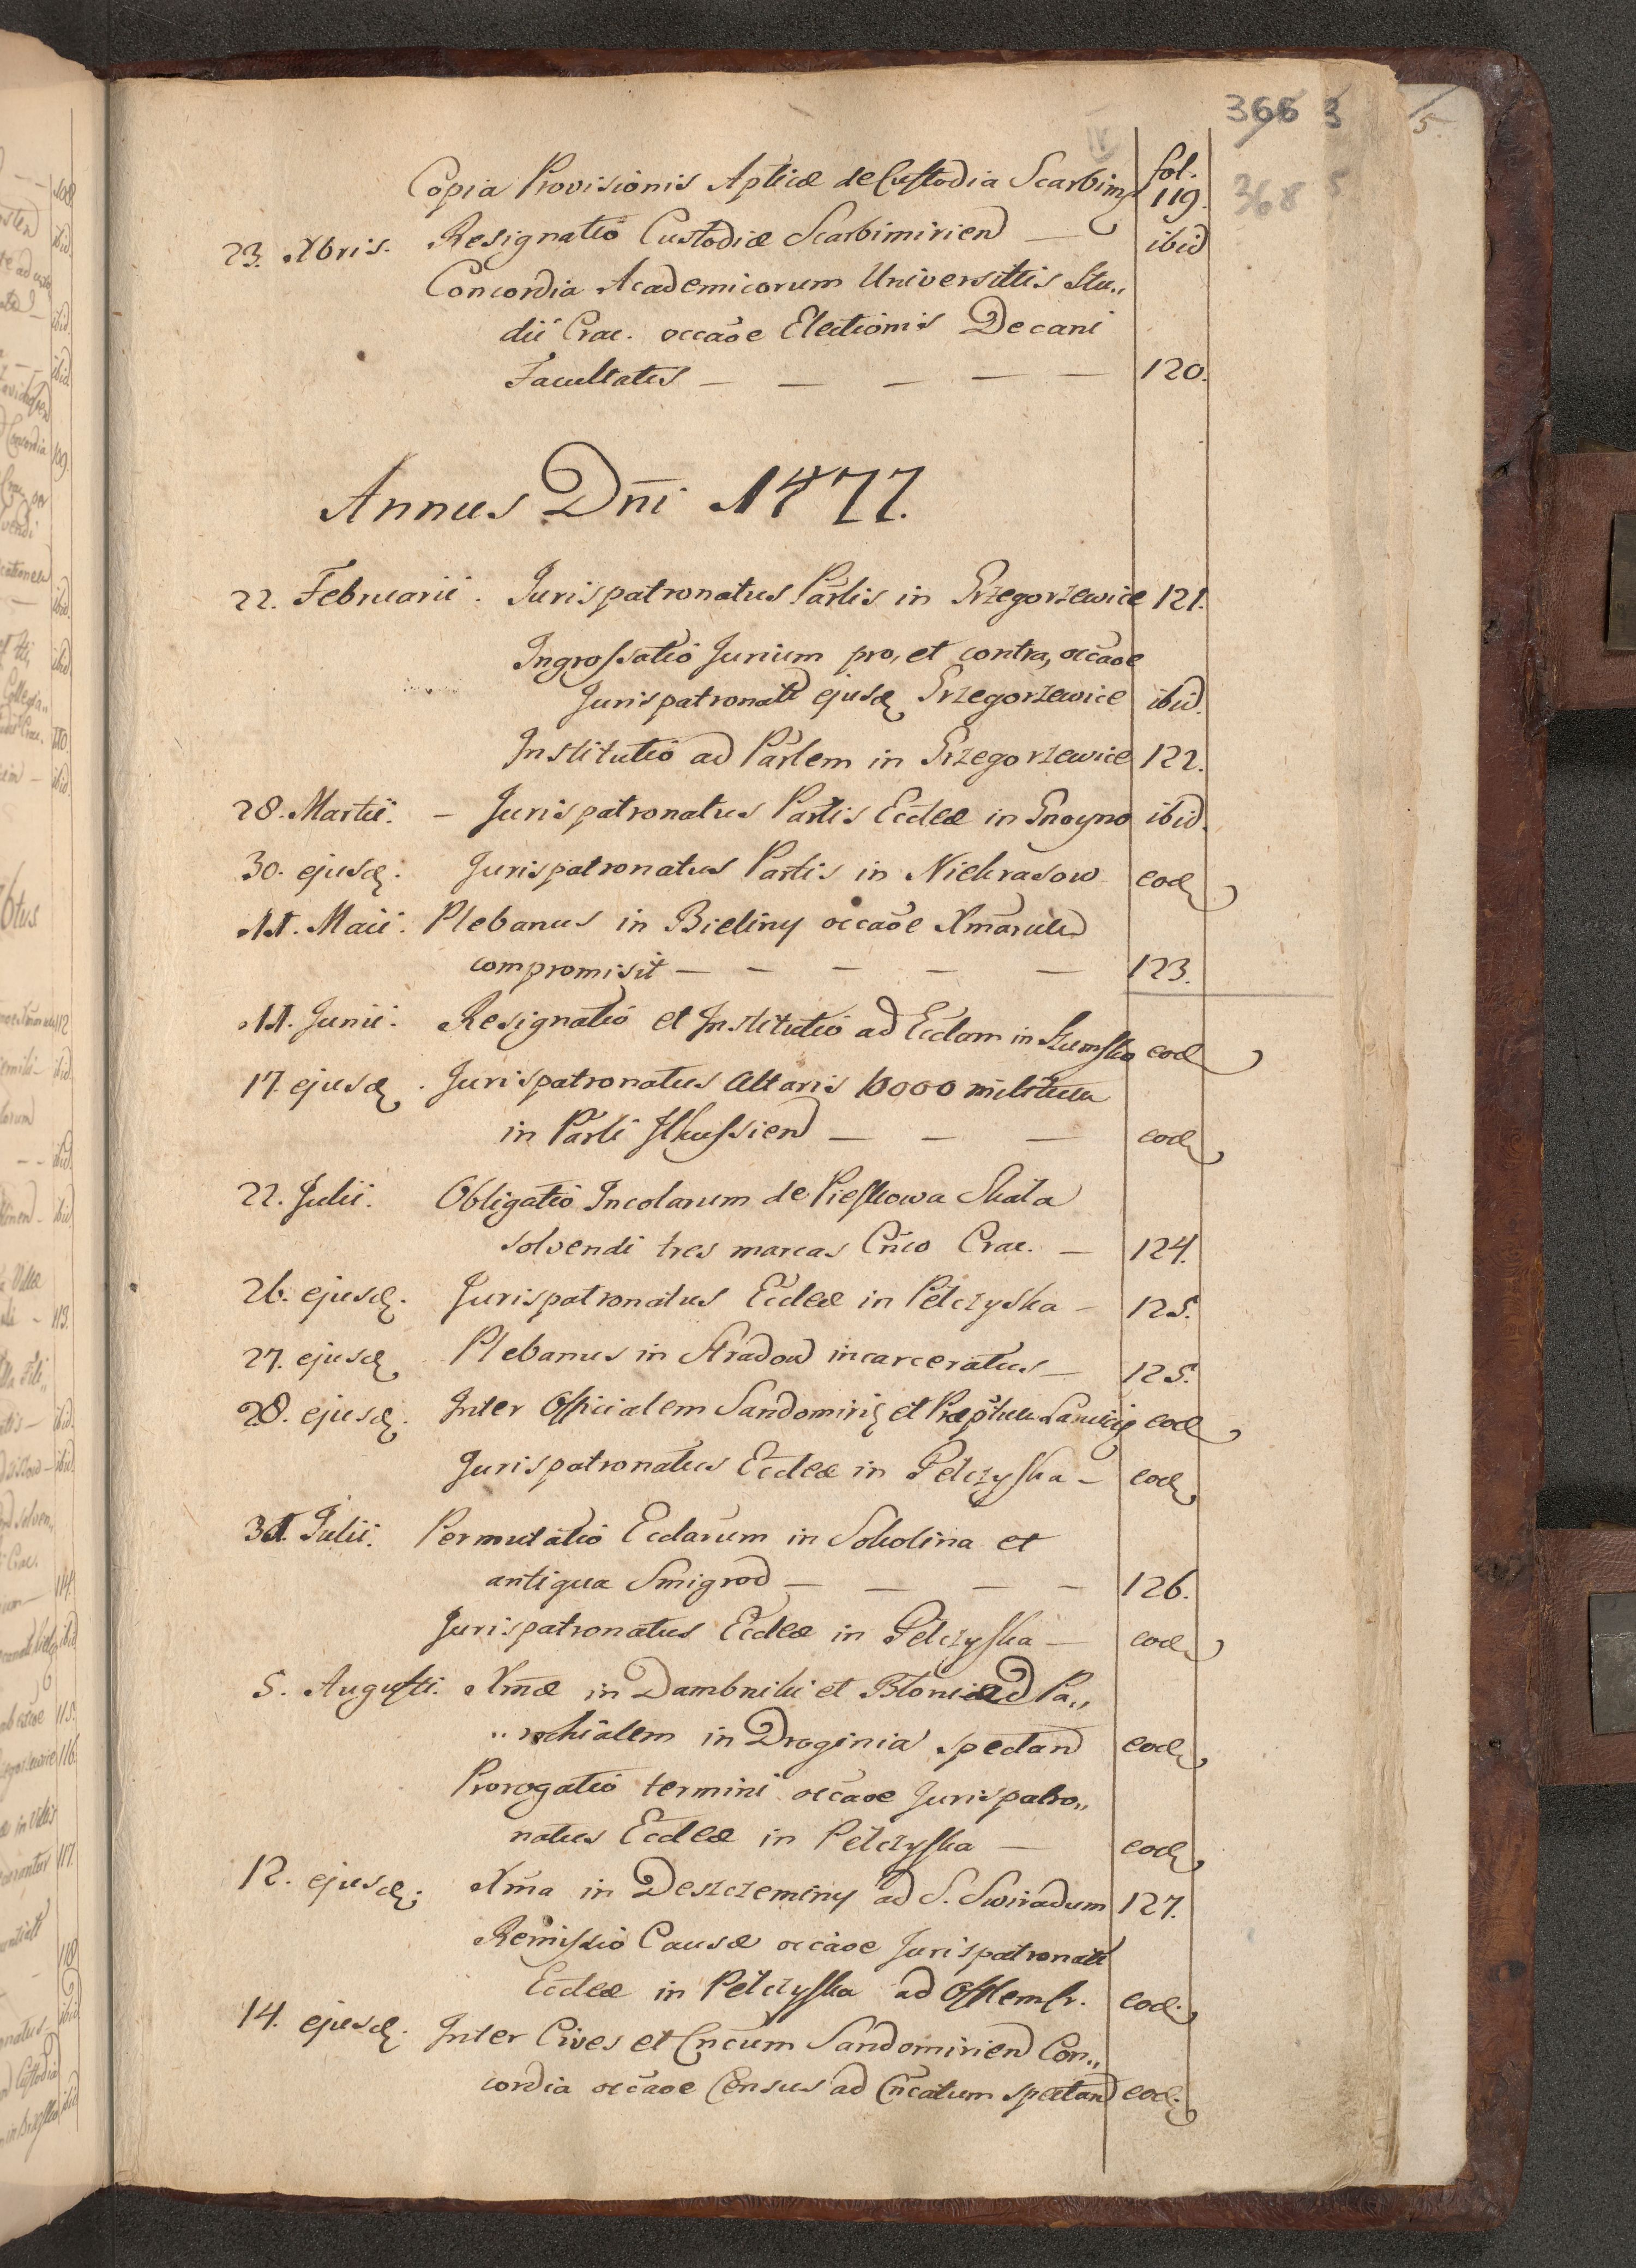 366 3 5.
368 5
fol.
Copia Provisionis Aplicæ de Custodia Scarbimi 119.
23. Xbris. Resignatio Custodiæ Scarbimirien — ibid
Concordia Academicorum Universittis Stu„
dii Crac. occãoe Electionis Decani
Facultatis — — — — — 120.
Annus Dñi 1477.
22. Februarii. Jurispatronatus Parlis in Grzegorzewice 121.
Ingrossatio Jurium pro, et contra, occãoe
Jurispatronatu ejusd Grzegorzewice ibid.
Institutio ad Parlem in Grzegorzewice 122.
28. Martii. — Jurispatronatus Partis Eccleæ in Gnoyno ibid.
30. ejusd. Jurispatronatus Partis in Niekrasow eod
11. Maii. Plebanus in Bieliny occãoe Xmarum
compromisit — — — — — 123.
11. Junii. Resignatio et Institutio ad Ecclam in Szumsko eod
17. ejusd. Jurispatronatus Altaris 10000 militum
in Parli Ilkussien — — — eod
22. Julii. Obligatio Incolarum de Pieskowa Skała
solvendi tres marcas Cñco Crac. — 124.
26. ejusd. Jurispatronatus Eccleæ in Pełczyska — 125.
27. ejusd Plebanus in Stradow incarceratus — 125.
28. ejusd. Inter Officialem Sandomiri et Præptum eod
Jurispatronatus Eccleæ in Pełczyska — eod
31. Julii. Permutatio Ecclarum in Sokolina et
antiqua Smigrod — — — — 126.
Jurispatronatus Eccleæ in Pełczyska — eod
5. Augusti. Xmæ in Dambniki et Błonie ad Pa„
„rochialem in Droginia spectan eod
Prorogatio termini occãoe Jurispatro„
natus Eccleæ in Pełczyska — eod
12. ejusd. Xma in Deszczeminy ad S. Swiradum 127.
Remissio Causæ occãoe Jurispatronatu
Eccleæ in Pełczyska ad Offlem Cr. eod.
14. ejusd. Inter Cives et Cñcum Sandomirien Con„
cordia occãoe Census ad Cñcatum spectan eod.